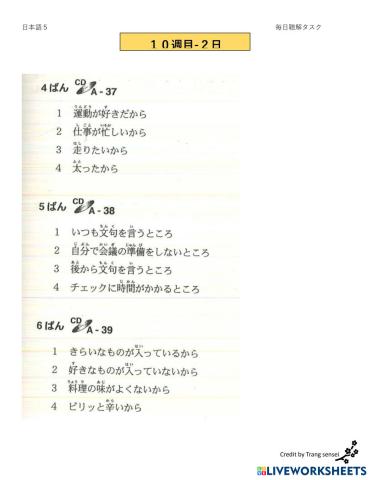 日本語５
毎日聴解タスク
１０週目-２日
4ばん CD A-37
1 運動が好きだから
2 仕事が忙しいから
3 走りたいから
4 太ったから
5ばん CD A-38
1 いつも文句を言うところ
2 自分で会議の準備をしないところ
3 後から文句を言うところ
4 チェックに時間がかかるところ
6ばん CD A-39
1 きらいなものが入っているから
2 好きなものが入っていないから
3 料理の味がよくないから
4 ピリッと辛いから
Credit by Trang sensei
LIVEWORKSHEETS